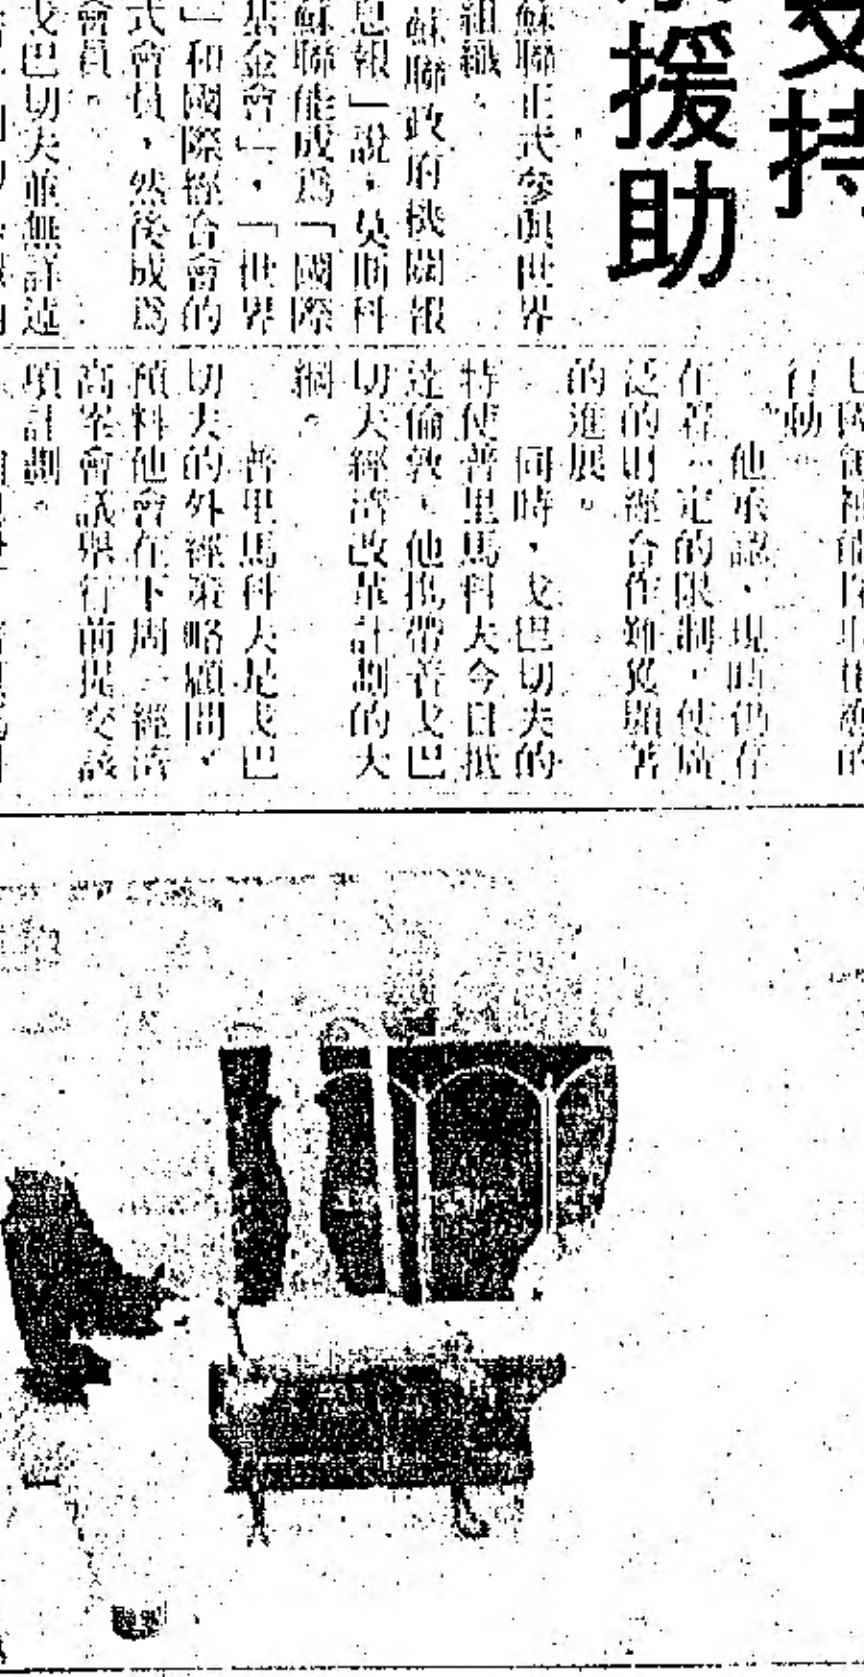 支持
援助
蘇聯正式參與世界
組織。
蘇聯政府機關報
息報」說，莫斯科
蘇聯能成爲「國際
基金會」，「世界
」和國際經合會的
式會員，然後成爲
會員。
戈巴切夫並無詳述
行動。
他承認，現時仍存
在着一定的限制，使廣
泛的財經合作難獲顯著
的進展。
同時，戈巴切夫的
特使普里馬科夫今日抵
達倫敦，他携帶着戈巴
切夫經濟改革計劃的大
綱。
普里馬科夫是戈巴
切夫的外經策略顧問，
預料他會在下周一經濟
高峯會議舉行前提交該
項計劃。